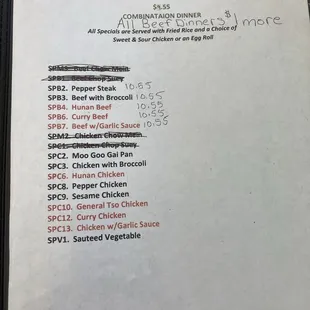 $8.55
COMBINATAION DINNER
All Beef Dinners $1 more
All Specials are Served with Fried Rice and a Choice of
Sweet & Sour Chicken or an Egg Roll
SPB1. Beef Chop Suey
SPB2. Pepper Steak 10.55
SPB3. Beef with Broccoli 10.55
SPB4. Hunan Beef 10.55
SPB6. Curry Beef 10.55
SPB7. Beef w/Garlic Sauce 10.55
SPM2. Chicken Chow Mein
SPC1. Chicken Chop Suey
SPC2. Moo Goo Gai Pan
SPC3. Chicken with Broccoli
SPC6. Hunan Chicken
SPC8. Pepper Chicken
SPC9. Sesame Chicken
SPC10. General Tso Chicken
SPC12. Curry Chicken
SPC13. Chicken w/Garlic Sauce
SPV1. Sauteed Vegetable